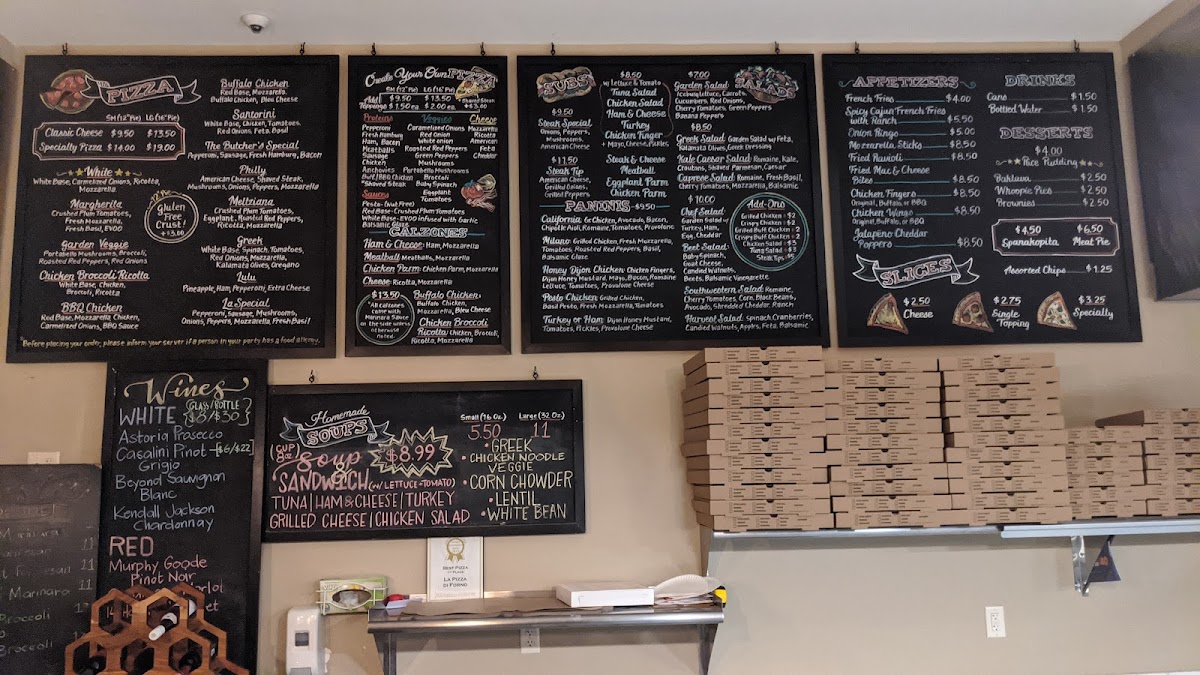 PIZZA
SM(12") LG(16")
Classic Cheese $9.50 $13.50
Specialty Pizza $14.00 $19.00
White
White Base, Carmelized Onions, Ricotta,
Mozzarella
Margherita
Crushed Plum Tomatoes,
Fresh Mozzarella,
Fresh Basil, EVOO
Garden Veggie
Portabella Mushrooms, Broccoli,
Roasted Red Peppers, Red Onions
Chicken Broccoli Ricotta
White Base, Chicken,
Broccoli, Ricotta
BBQ Chicken
Red Base, Mozzarella, Chicken,
Carmelized Onions, BBQ Sauce
Gluten
Free
Crust!
+$3.00
Buffalo Chicken
Red Base, Mozzarella,
Buffalo Chicken, Bleu Cheese
Santorini
White Base, Chicken, Tomatoes,
Red Onions, Feta, Basil
The Butcher's Special
Pepperoni, Sausage, Fresh Hamburg, Bacon
Philly
American Cheese, Shaved Steak,
Mushrooms, Onions, Peppers, Mozzarella
Meltziana
Crushed Plum Tomatoes,
Eggplant, Roasted Red Peppers,
Ricotta, Mozzarella
Greek
White Base, Spinach, Tomatoes,
Red Onions, Mozzarella,
Kalamata Olives, Oregano
Lulu
Pineapple, Ham, Pepperoni, Extra Cheese
La Special
Pepperoni, Sausage, Mushrooms,
Onions, Peppers, Mozzarella, Fresh Basil
Before placing your order, please inform your server if a person in your party has a food allergy.
Create Your Own Pizza
SM (12") LG (16")
$9.50 $13.50
Add'l
Toppings $1.50 ea $2.00 ea.
Shaved Steak
$3.00
Proteins
Pepperoni
Fresh Hamburg
Ham, Bacon
Meatballs
Sausage
Chicken
Anchovies
Buff./BBQ Chicken
*Shaved Steak
Veggies
Caramelized Onions
Red Onion
White onion
Tomatoes
Roasted Red Peppers
Green Peppers
Mushrooms
Portabella Mushrooms
Broccoli
Baby Spinach
Eggplant
Tomatoes
Cheese
Mozzarella
Ricotta
American
Feta
Cheddar
Sauces
Pesto- (nut Free)
Red Base- Crushed Plum Tomatoes
White Base- EVOO Infused with Garlic
Balsamic Glaze
CALZONES
Ham & Cheese: Ham, Mozzarella
Meatball: Meatballs, Mozzarella
Chicken Parm: Chicken Parm, Mozzarella
Cheese: Ricotta, Mozzarella
$13.50
All calzones
come with
Marinara Sauce
on the side unless
otherwise
noted.
Buffalo Chicken:
Buffalo Chicken,
Mozzarella, Bleu Cheese
Chicken Broccoli
Ricotta: Chicken, Broccoli,
Ricotta, Mozzarella
SUBS
$9.50
Steak Special
Onions, Peppers,
Mushrooms,
American Cheese
$11.50
Steak Tip
American Cheese,
Grilled Onions,
Grilled Peppers
$8.50
w/ Lettuce & Tomato
Tuna Salad
Chicken Salad
Ham & Cheese
Turkey
Chicken Finger
+ Mayo, Cheese, Pickles
Steak & Cheese
Meatball
Eggplant Parm
Chicken Parm
PANINIS -$9.50
California: Gr. Chicken, Avocado, Bacon,
Chipotle Aioli, Romaine, Tomatoes, Provolone
Milano: Grilled Chicken, Fresh Mozzarella,
Tomatoes, Roasted Red Peppers, Basil,
Balsamic Glaze
Honey Dijon Chicken: Chicken Fingers,
Dijon Honey Mustard, Mayo, Bacon, Romaine
Lettuce, Tomatoes, Provolone Cheese
Pesto Chicken: Grilled Chicken,
Basil Pesto, Fresh Mozzarella, Tomatoes
Turkey or Ham: Dijon Honey Mustard,
Tomatoes, Pickles, Provolone Cheese
SALADS
$7.00
Garden Salad:
Iceberg Lettuce, Carrots,
Cucumbers, Red Onions,
Cherry Tomatoes, Green Peppers
Banana Peppers
$8.50
Greek Salad: Garden Salad w/ Feta,
Kalamata Olives, Greek Dressing
Kale Caesar Salad: Romaine, Kale,
Croutons, Shaved Parmesan, Caesar
Caprese Salad: Romaine, Fresh Basil,
Cherry Tomatoes, Mozzarella, Balsamic
$10.00
Chef Salad:
Garden Salad w/
Turkey, Ham,
Egg, Cheddar
Beet Salad:
Baby Spinach,
Goat Cheese,
Candied Walnuts,
Beets, Balsamic Vinegarette
Southwestern Salad: Romaine,
Cherry Tomatoes, Corn, Black Beans,
Avocado, Shredded Cheddar, Ranch
Harvest Salad: Spinach, Cranberries,
Candied Walnuts, Apples, Feta, Balsamic
Add-Ons
Grilled Chicken: $2
Crispy Chicken: $2
Grilled Buff Chicken: 2
Crispy Buff Chicken: 2
Chicken Salad: $3
Tuna Salad: $3
Steak Tips: $5
APPETIZERS
French Fries $4.00
Spicy Cajun French Fries
with Ranch $5.50
Onion Rings $5.00
Mozzarella Sticks $8.50
Fried Ravioli $8.50
Fried Mac & Cheese
Bites $8.50
Chicken Fingers $8.50
Original, Buffalo, or BBQ
Chicken Wings $8.50
Original, Buffalo, or BBQ
Jalapeño Cheddar
Poppers $8.50
DRINKS
Cans $1.50
Bottled Water $1.50
DESSERTS
$4.00
Rice Pudding
Baklava $2.50
Whoopie Pies $2.50
Brownies $2.50
$4.50 $6.50
Spanakopita Meat Pie
Assorted Chips $1.25
SLICES
$2.50
Cheese
$2.75
Single
Topping
$3.25
Specialty
Wines
WHITE {GLASS/BOTTLE
$8/$30}
Astoria Prosecco
Casalini Pinot [$6/$22]
Grigio
Beyond Sauvignon
Blanc
Kendall Jackson
Chardonnay
RED
Murphy Goode
Pinot Noir
Homemade
SOUPS
Small (16 Oz.) Large (32 Oz.)
5.50 11
CUP
8oz
Soup
$8.99
SANDWICH (w/ LETTUCE + TOMATO)
TUNA | HAM & CHEESE | TURKEY
GRILLED CHEESE | CHICKEN SALAD
• GREEK
• CHICKEN NOODLE
VEGGIE
• CORN CHOWDER
• LENTIL
• WHITE BEAN
Marinara 11
11
Marinara 11
Broccoli
Broccoli
BEST PIZZA
1ST PLACE
LA PIZZA
DI FORNO